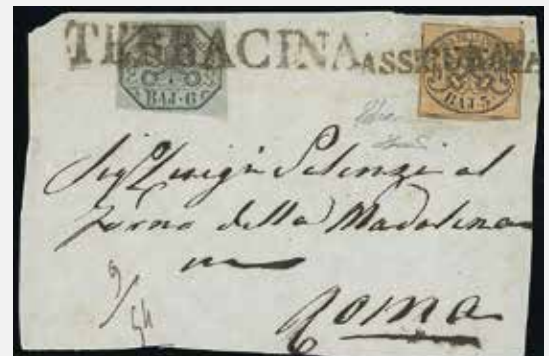 TERRACINA ASSICURATA
BAJ·6
BAJ·5
Sig Luigi al
forno della Madalena
Roma